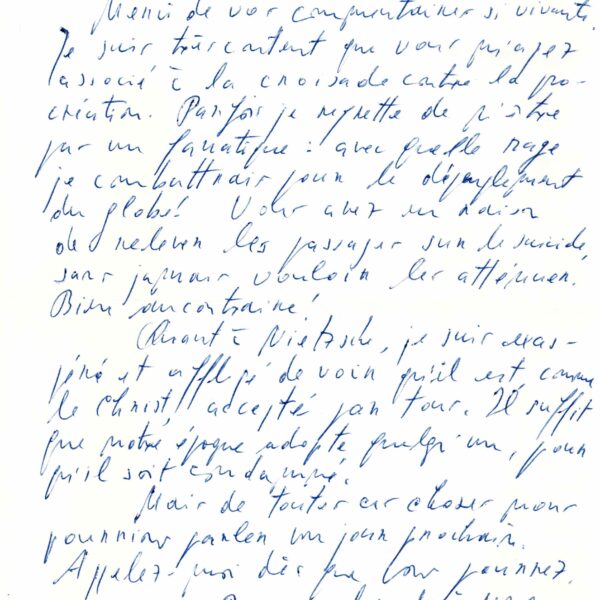 Merci de vos commentaires si vivants.
Je suis très content que vous m'ayez
associé à la croisade contre la pro-
création. Parfois je regrette de n'être
pas un fanatique : avec quelle rage
je combattrais pour le dépeuplement
du globe! Vous avez eu raison
de relever les passages sur le suicide,
sans jamais vouloir les atténuer.
Bien au contraire!
Quant à Nietzsche, je suis exas-
péré et affligé de voir qu'il est, comme
le Christ, accepté par tous. Il suffit
que notre époque adopte quelqu'un, pour
qu'il soit condamné.
Mais de toutes ces choses nous
pourrions parler un jour prochain.
Appelez-moi dès que vous pourrez.